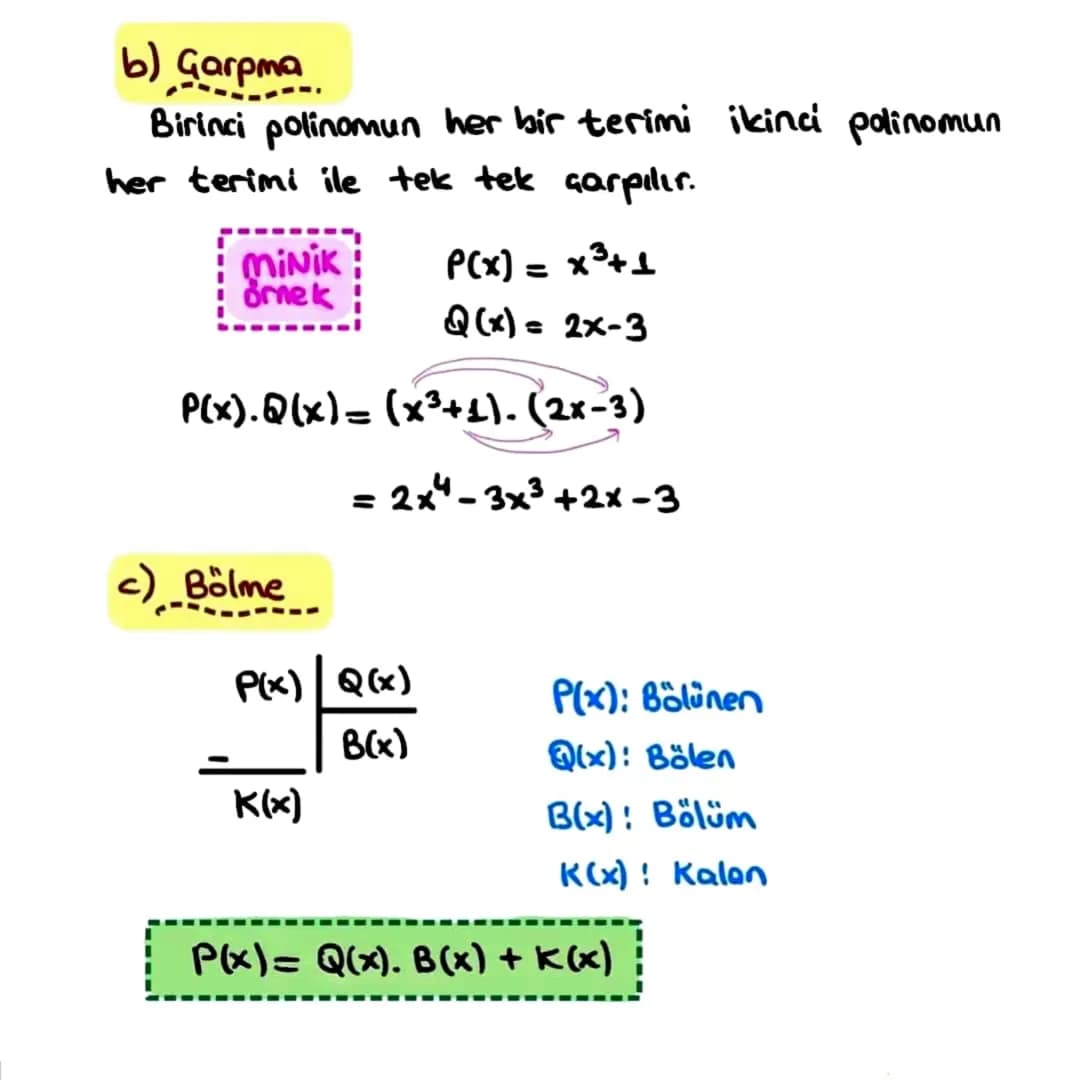 b) Çarpma
Birinci polinomun her bir terimi ikinci polinomun
her terimi ile tek tek çarpılır.
MiNiK
örnek
P(x) = x³+1
Q(x) = 2x-3
P(x).Q(x) = (x³+1).(2x-3)
= 2x⁴ - 3x³ +2x -3
c) Bölme
P(x) Q(x)
B(x)
-
K(x)
P(x): Bölünen
Q(x): Bölen
B(x): Bölüm
K(x): Kalan
P(x) = Q(x). B(x) + K(x)